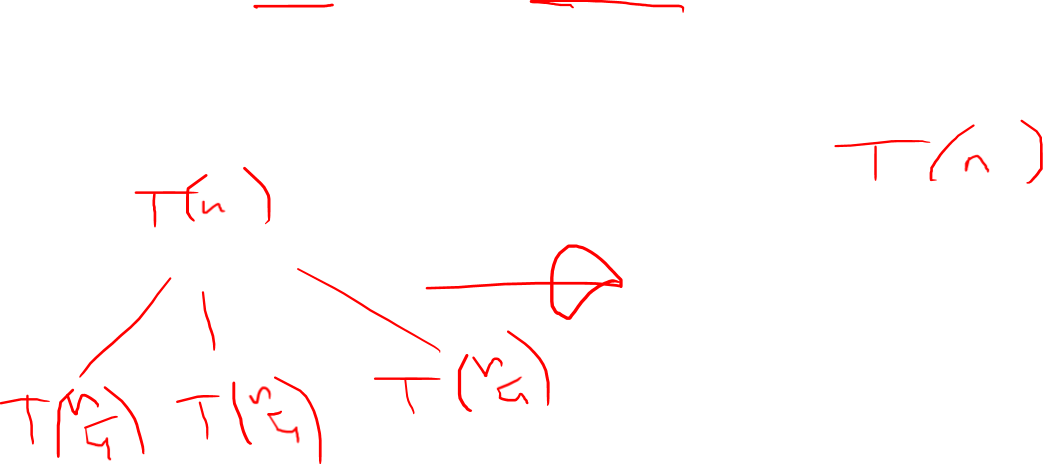 T(n)
T(n)
T(n/4) T(n/4) T(n/4)